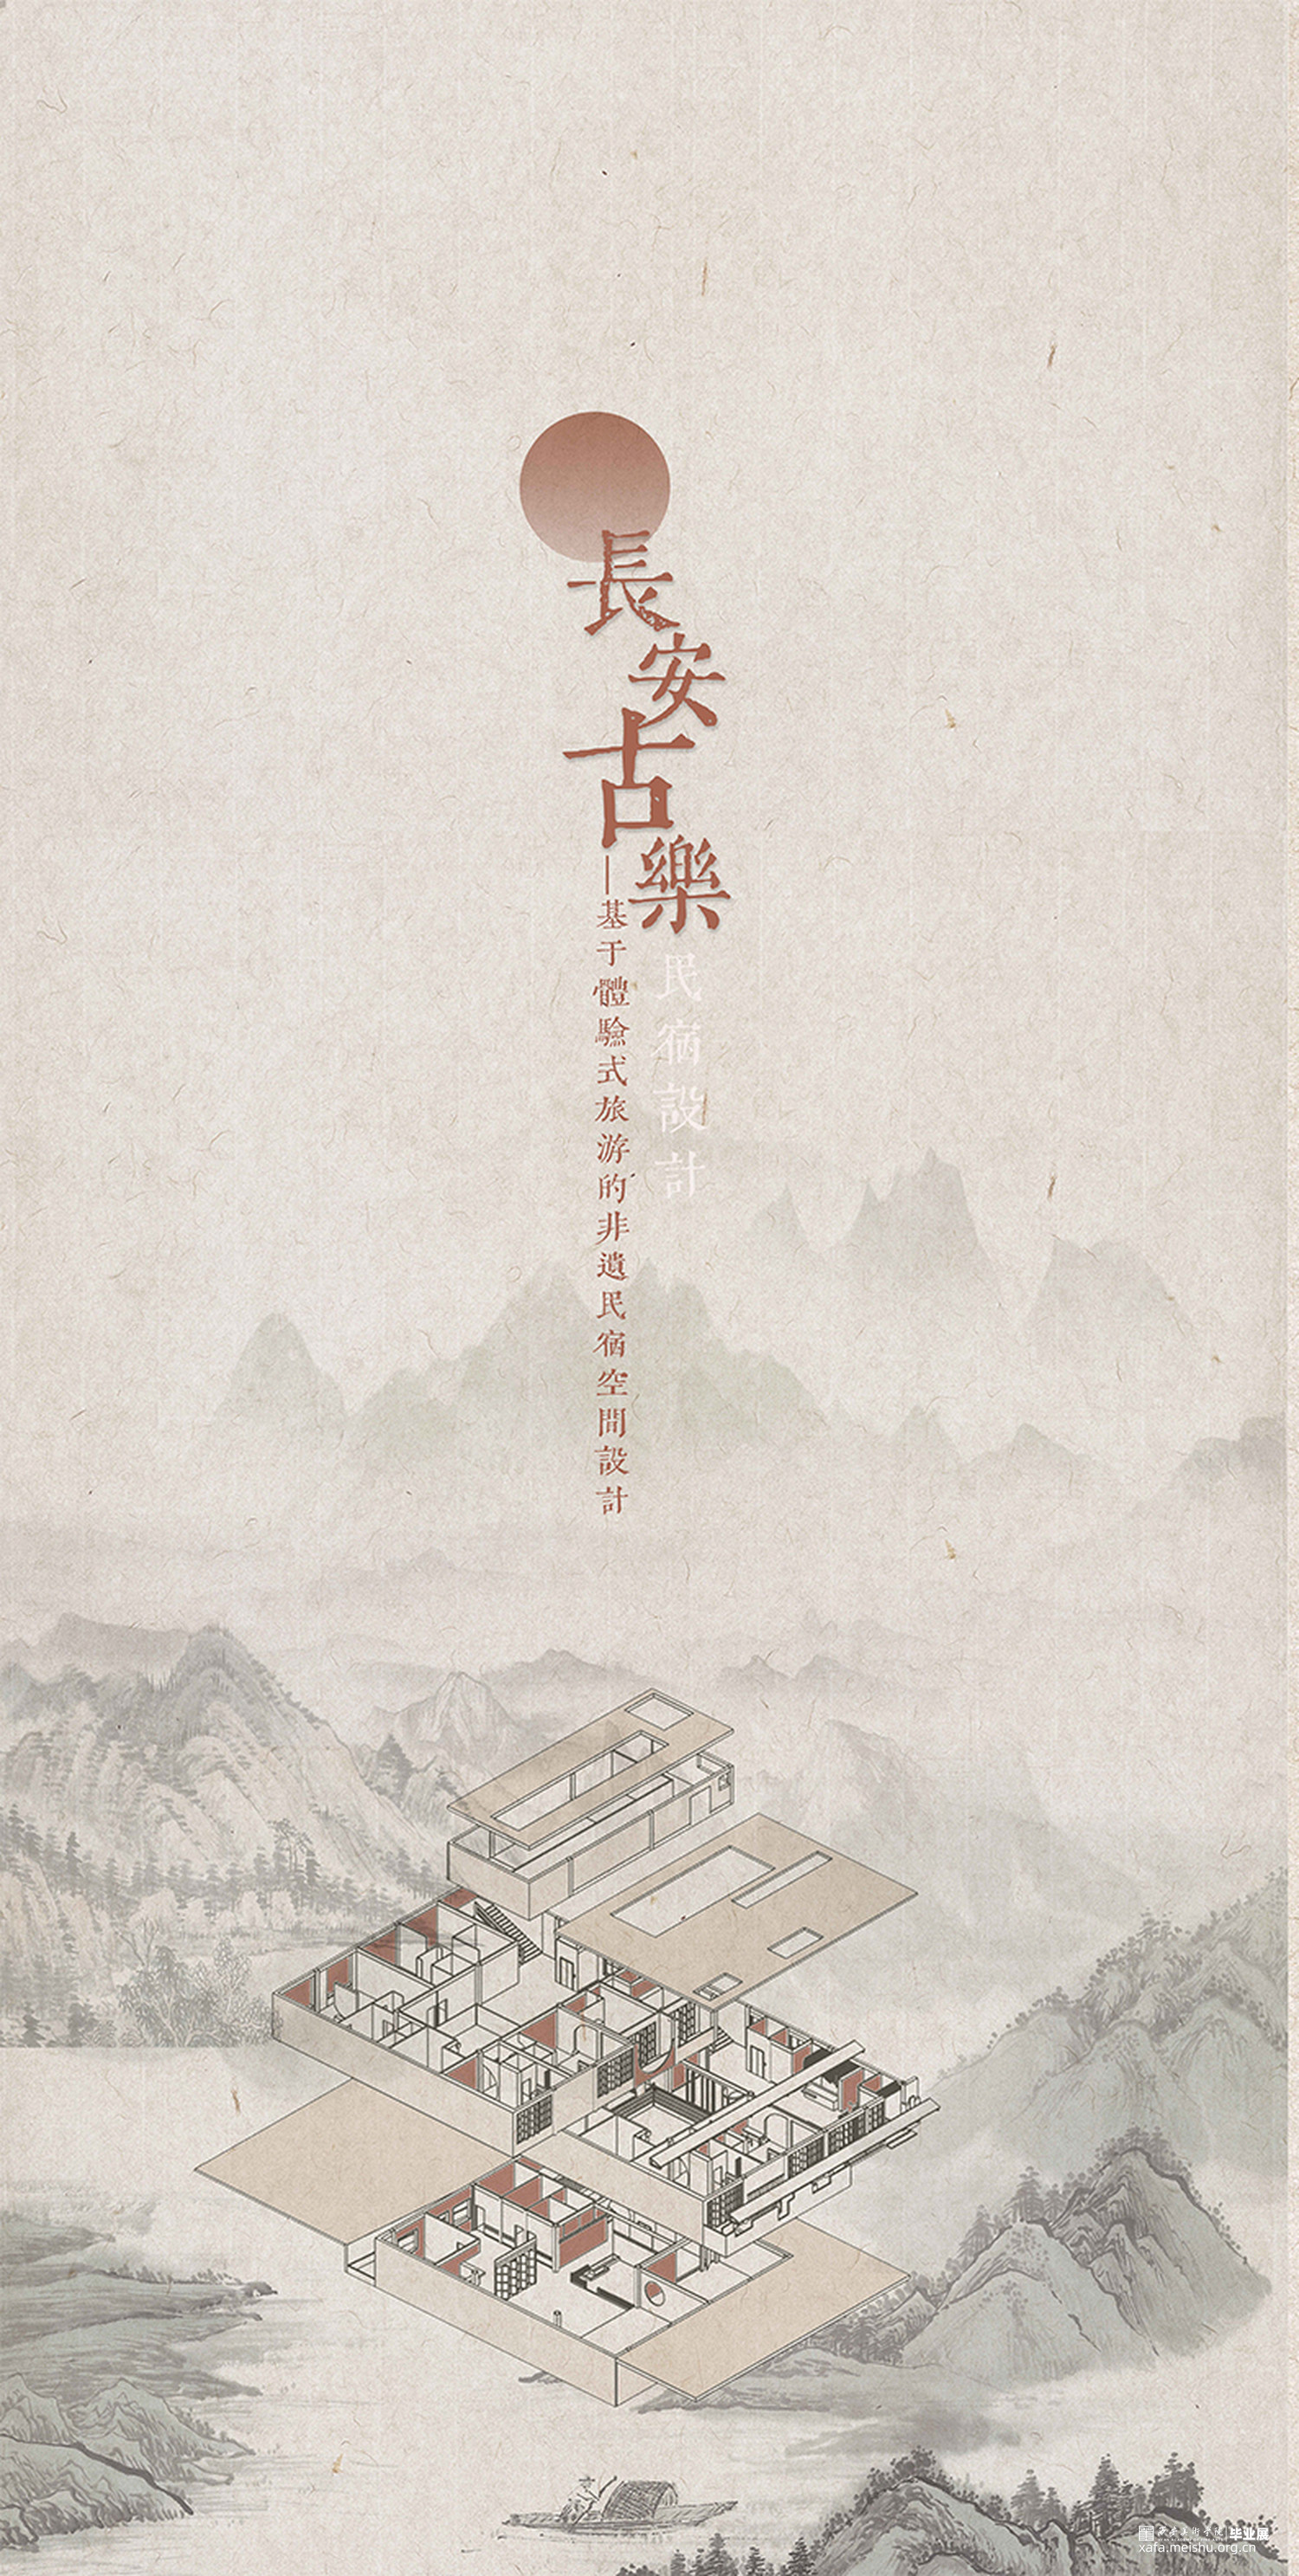 長安古樂
民宿設計
—基于體驗式旅游的非遺民宿空間設計
西安美術學院 毕业展
xafa.meishu.org.cn